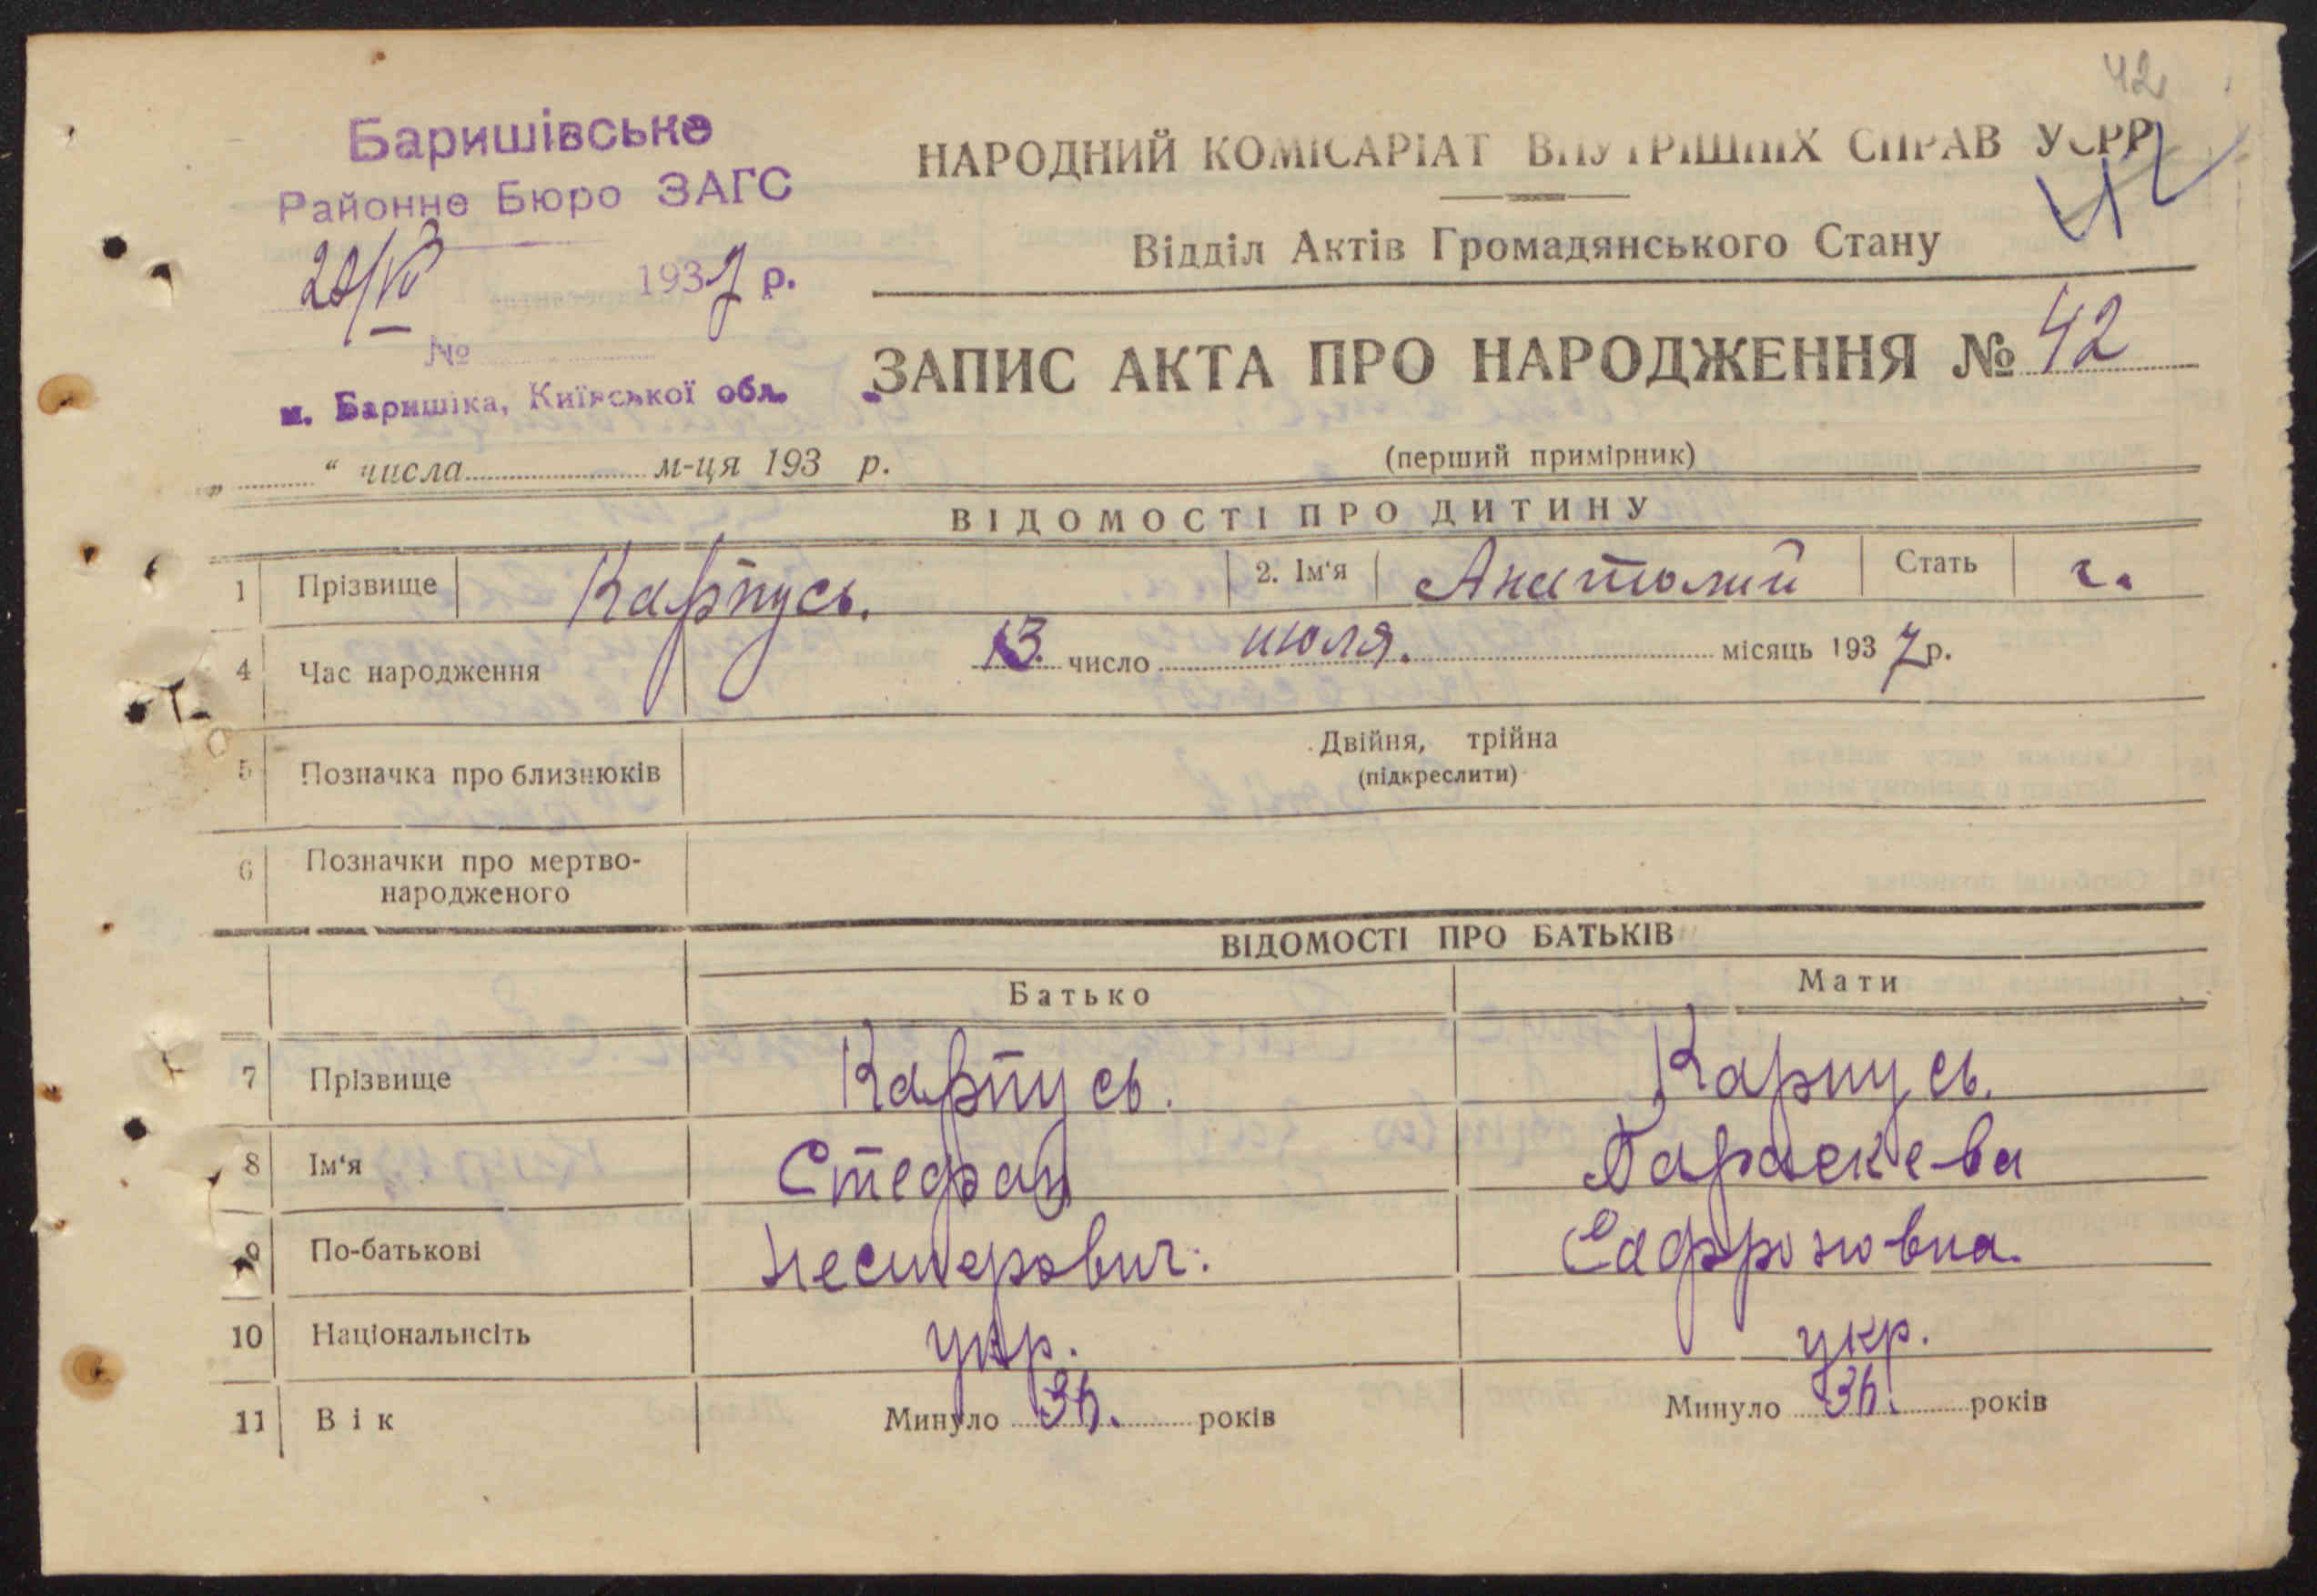 42
Баришівське
Районне Бюро ЗАГС
1937 р.
№
м. Баришівка, Київської обл.
НАРОДНИЙ КОМІСАРІАТ ВНУТРІШНІХ СПРАВ УСРР
42
Відділ Актів Громадянського Стану
ЗАПИС АКТА ПРО НАРОДЖЕННЯ № 42
„ “ числа м-ця 193 р.
(перший примірник)
ВІДОМОСТІ ПРО ДИТИНУ
1 Прізвище Карпусь. 2. Ім'я Анатолий Стать ч.
4 Час народження 13. число июля. місяць 1937 р.
5 Позначка про близнюків Двійня, трійна
(підкреслити)
6 Позначки про мертво-
народженого
ВІДОМОСТІ ПРО БАТЬКІВ
Батько Мати
7 Прізвище Карпусь. Карпусь.
8 Ім'я Стефан Параскева
9 По-батькові Нестерович. Сафроновна.
10 Національність укр. укр.
11 Вік Минуло 36. років Минуло 36. років